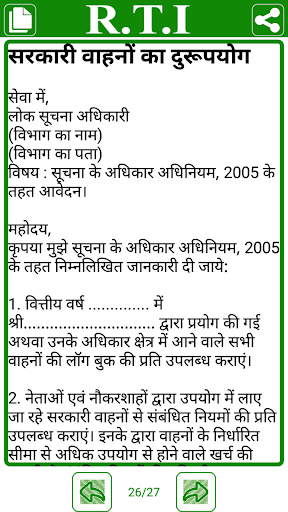 R.T.I
सरकारी वाहनों का दुरूपयोग
सेवा में,
लोक सूचना अधिकारी
(विभाग का नाम)
(विभाग का पता)
विषय : सूचना के अधिकार अधिनियम, 2005 के
तहत आवेदन।
महोदय,
कृपया मुझे सूचना के अधिकार अधिनियम, 2005
के तहत निम्नलिखित जानकारी दी जाये:
1. वित्तीय वर्ष .............. में
श्री.............................. द्वारा प्रयोग की गई
अथवा उनके अधिकार क्षेत्र में आने वाले सभी
वाहनों की लॉग बुक की प्रति उपलब्ध कराएं।
2. नेताओं एवं नौकरशाहों द्वारा उपयोग में लाए
जा रहे सरकारी वाहनों से संबंधित नियमों की प्रति
उपलब्ध कराएं। इनके द्वारा वाहनों के निर्धारित
सीमा से अधिक उपयोग से होने वाले खर्च की
26/27